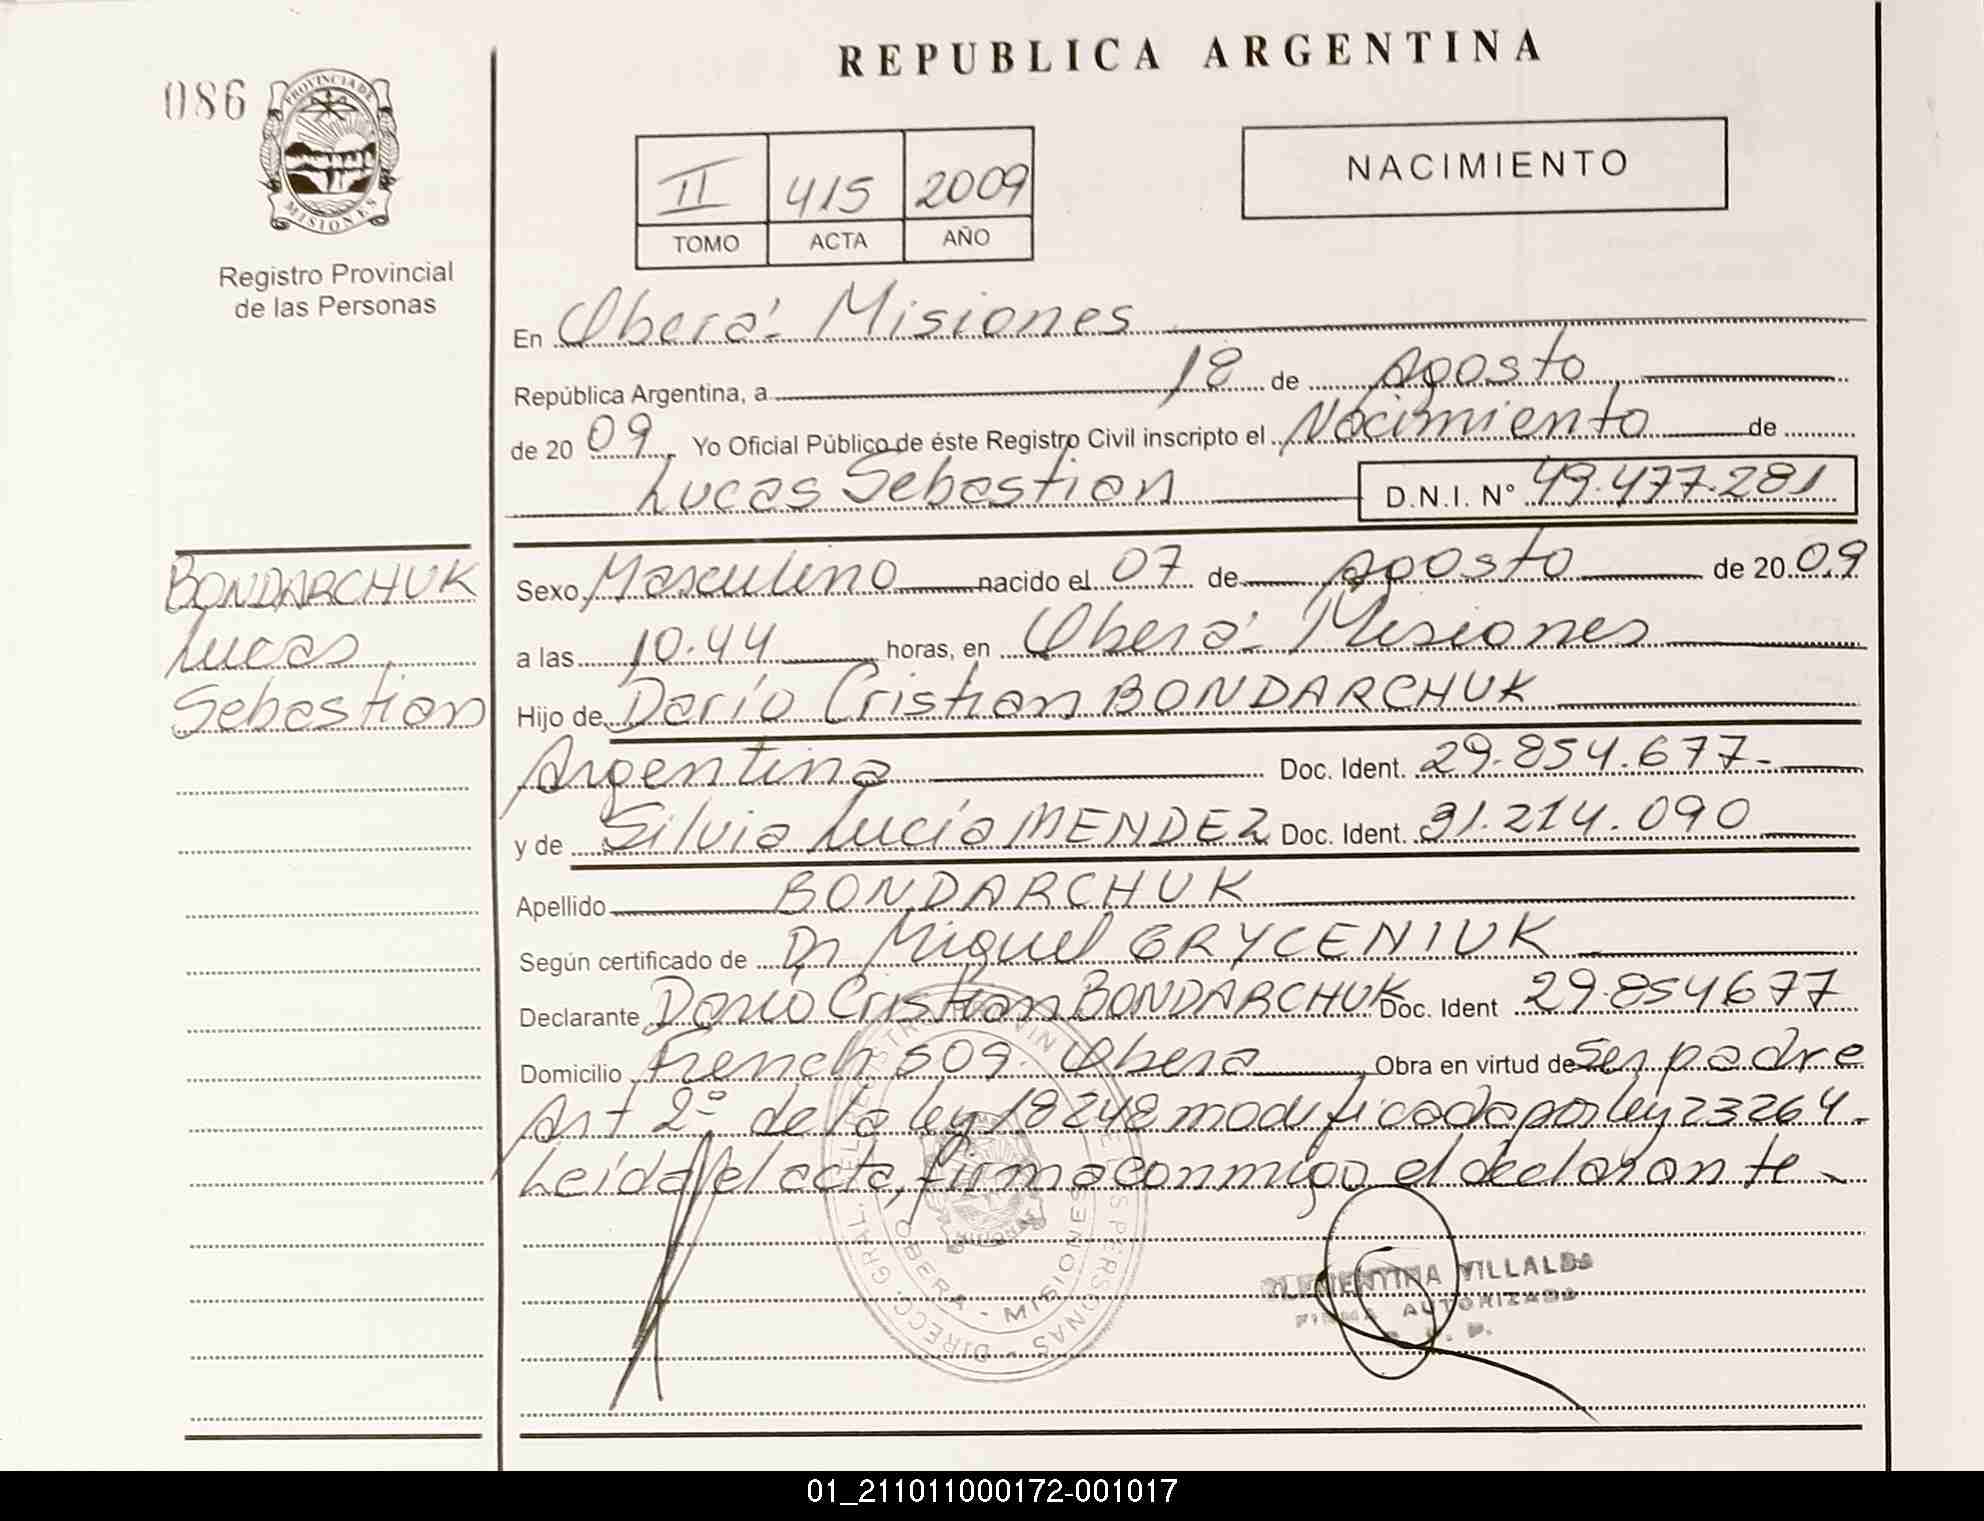 REPUBLICA ARGENTINA
086
PROVINCIA DE
MISIONES
Registro Provincial
de las Personas
II 415 2009
TOMO ACTA AÑO
NACIMIENTO
En Oberá - Misiones
República Argentina, a 18 de Agosto
de 20 09 Yo Oficial Público de éste Registro Civil inscripto el Nacimiento de
Lucas Sebastian D.N.I. Nº 49.477.281
BONDARCHUK
Lucas
Sebastian
Sexo Masculino nacido el 07 de Agosto de 20 09
a las 10.44 horas, en Oberá - Misiones
Hijo de Darío Cristian BONDARCHUK
Argentina Doc. Ident. 29.854.677-
y de Silvia Lucía MENDEZ Doc. Ident. 31.214.090
Apellido BONDARCHUK
Según certificado de Dr Miguel GRYCENIUK
Declarante Darío Cristian BONDARCHUK Doc. Ident 29.854677
Domicilio French 509 - Obera Obra en virtud de Ser padre
Art 2º de la ley 18248 modificada por ley 23264-
Leída el acta, firma conmigo el declarante-
OBERA - MISIONES
CLEMENTINA VILLALBA
FIRMA AUTORIZADA
01_211011000172-001017